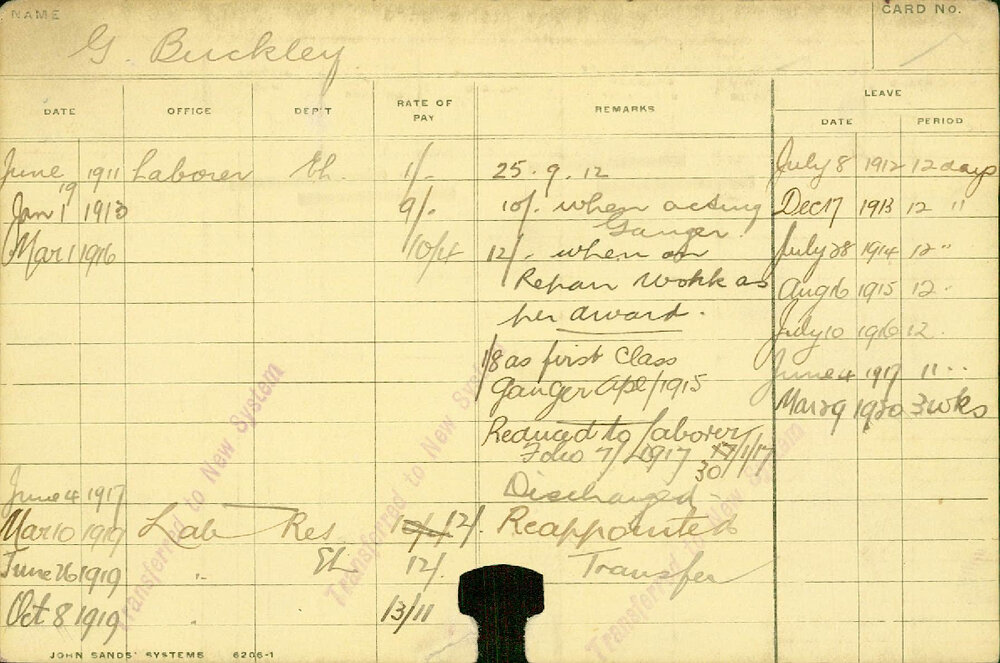 NAME
CARD No.
G. Buckley
DATE OFFICE DEPT RATE OF PAY REMARKS LEAVE
DATE PERIOD
June 19 1911 Laborer Eh. 25.9.12 July 8 1912 12 days
Jan 1 1913 9/- 10/- when acting Dec 17 1913 12 "
Ganger.
Mar 1 1916 12/- when on July 28 1914 12 "
Repair work as Aug 16 1915 12 "
per award. July 10 1916 12 "
1/8 as first Class June 4 1917 11 "
Ganger 1915 Mar 29 1920 3 wks
Reduced to Laborer
Folio 7/1917 17/1/17
30
June 4 1917 Discharged
Mar 10 1919 Lab Res 12/- Reappointed
June 26 1919 " Eh 12/- Transfer
Oct 8 1919 " 13/11
Transferred to New System
Transferred to New System
Transferred to New System
JOHN SANDS' SYSTEMS 6206-1